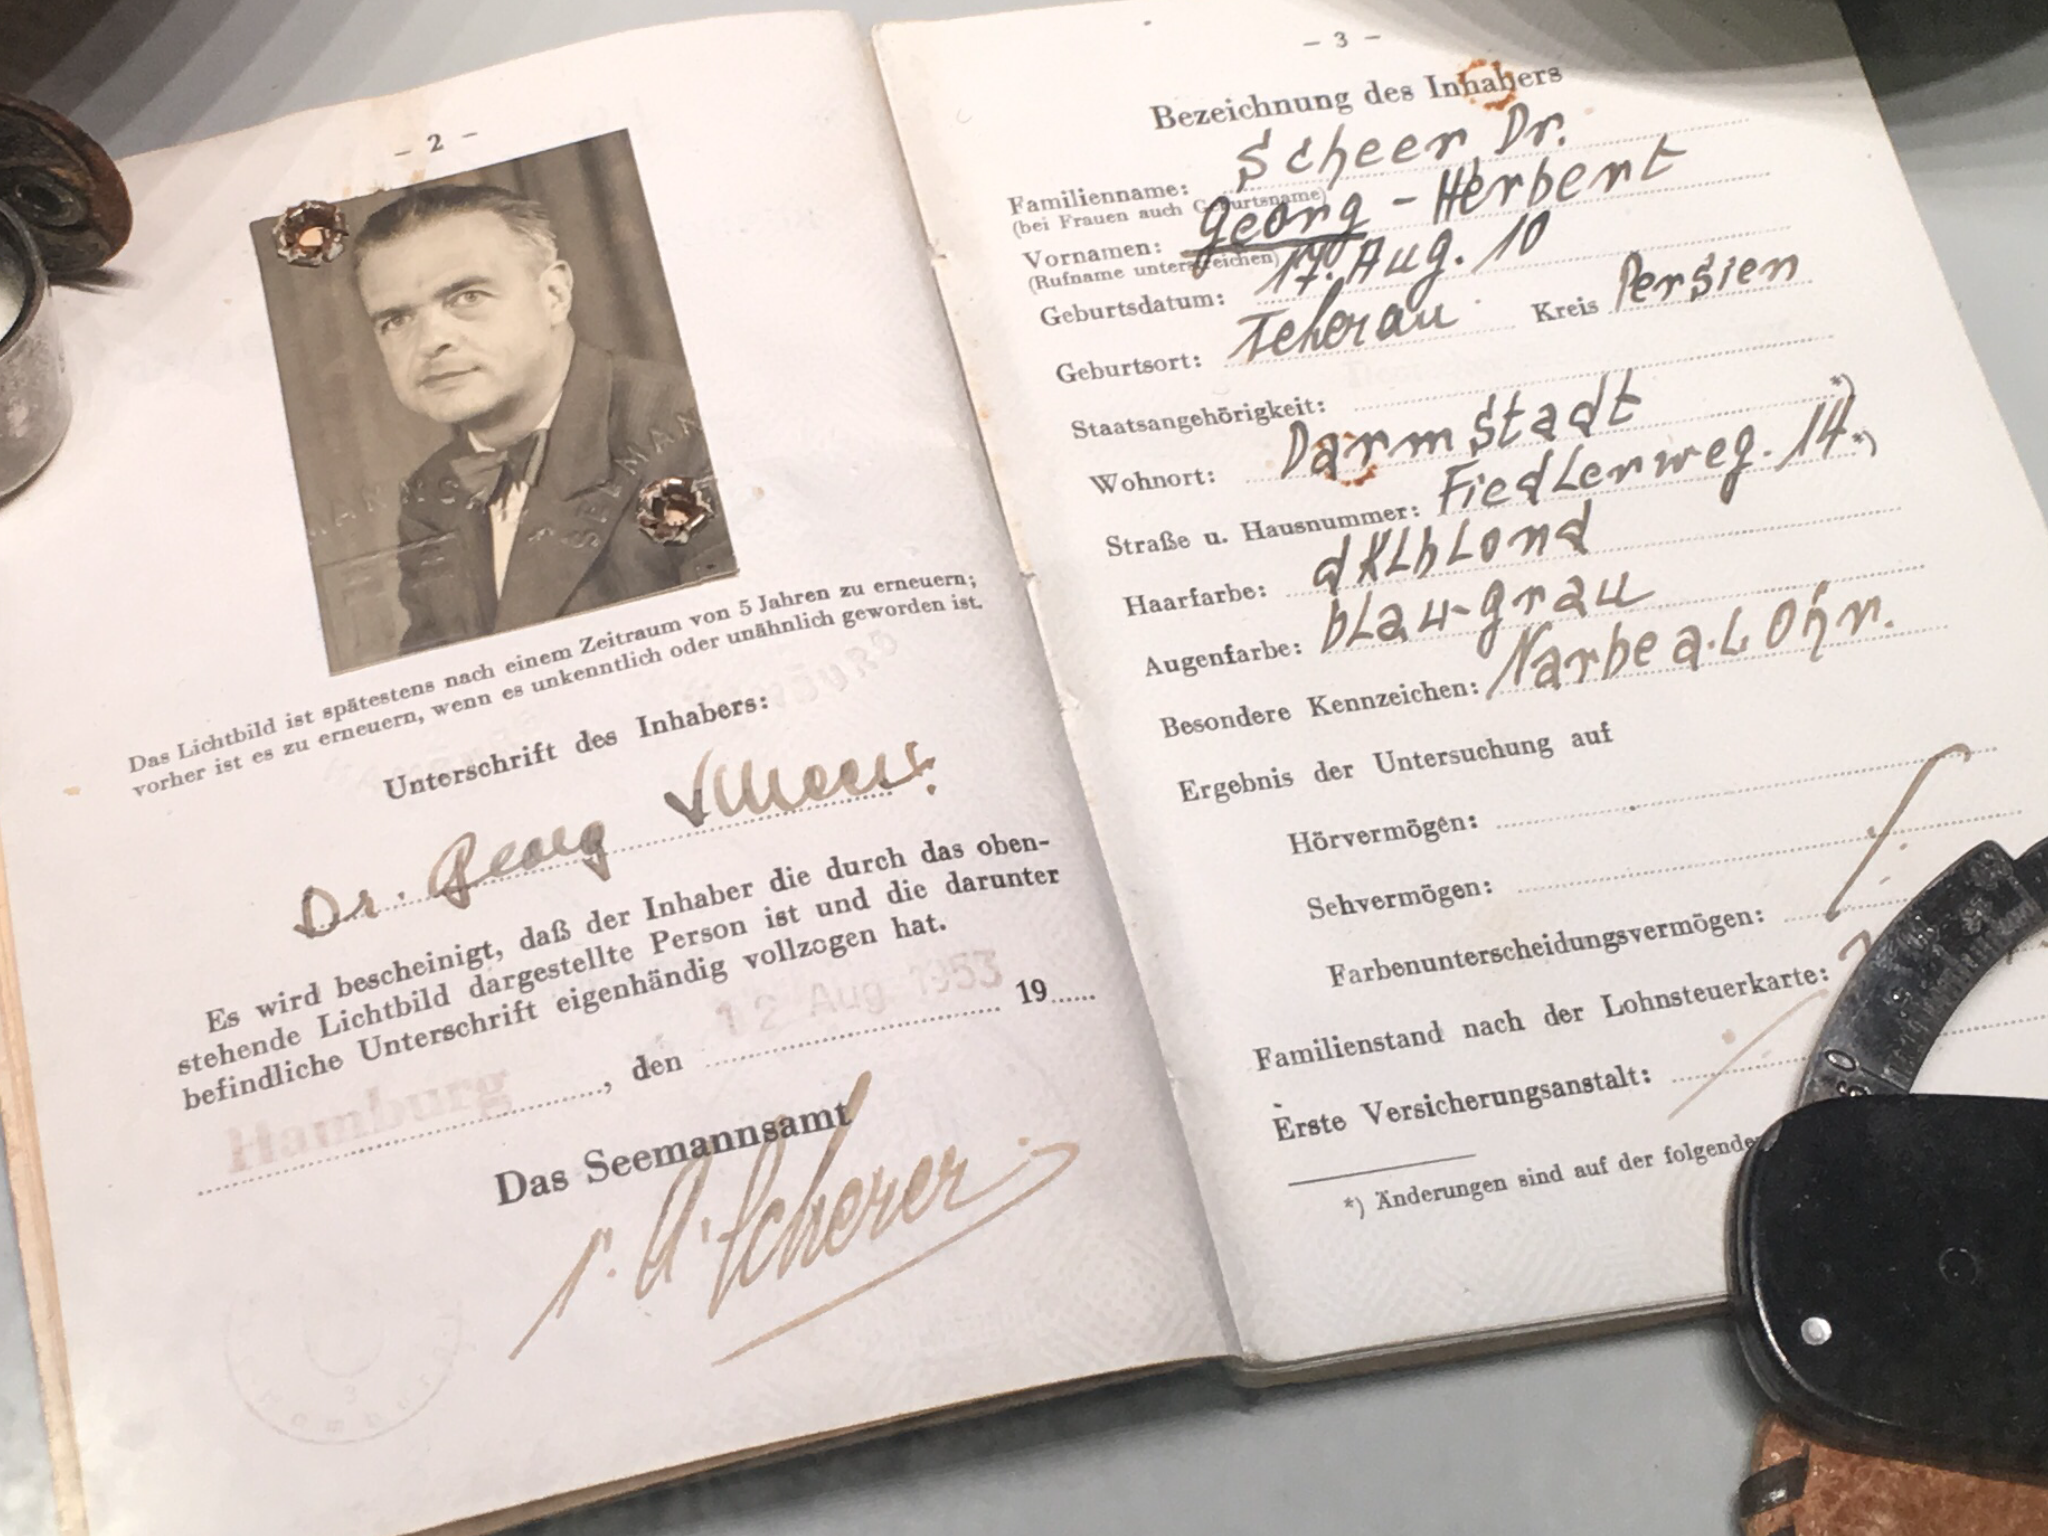 – 2 –
SEEMAN
Das Lichtbild ist spätestens nach einem Zeitraum von 5 Jahren zu erneuern;
vorher ist es zu erneuern, wenn es unkenntlich oder unähnlich geworden ist.
Unterschrift des Inhabers:
Dr. Georg Scheer.
Es wird bescheinigt, daß der Inhaber die durch das oben-
stehende Lichtbild dargestellte Person ist und die darunter
befindliche Unterschrift eigenhändig vollzogen hat.
Hamburg, den 12 Aug 1953 19
Das Seemannsamt
Scherer
– 3 –
Bezeichnung des Inhabers
Familienname: Scheer, Dr.
(bei Frauen auch Geburtsname)
Vornamen: Georg - Herbert
(Rufname unterstreichen)
Geburtsdatum: 17. Aug. 10
Geburtsort: Teheran Kreis Persien
Staatsangehörigkeit:
Wohnort: Darmstadt *)
Straße u. Hausnummer: Fiedlerweg. 14 *)
Haarfarbe: dklblond
Augenfarbe: blau-grau
Besondere Kennzeichen: Narbe a. L Ohr.
Ergebnis der Untersuchung auf
Hörvermögen:
Sehvermögen:
Farbenunterscheidungsvermögen:
Familienstand nach der Lohnsteuerkarte:
Erste Versicherungsanstalt:
*) Änderungen sind auf der folgenden